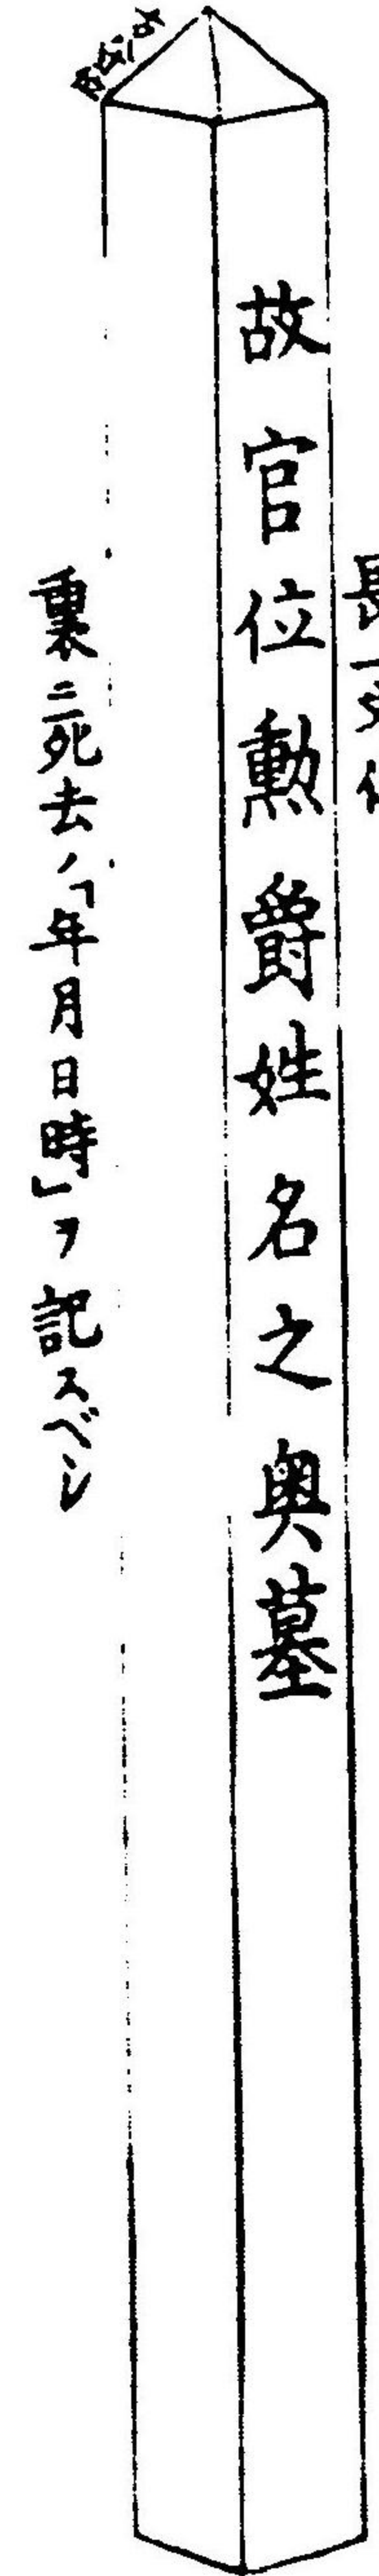 故官位勲爵姓名之奥墓
裏ニ死去ノ「年月日時」ヲ記スベシ